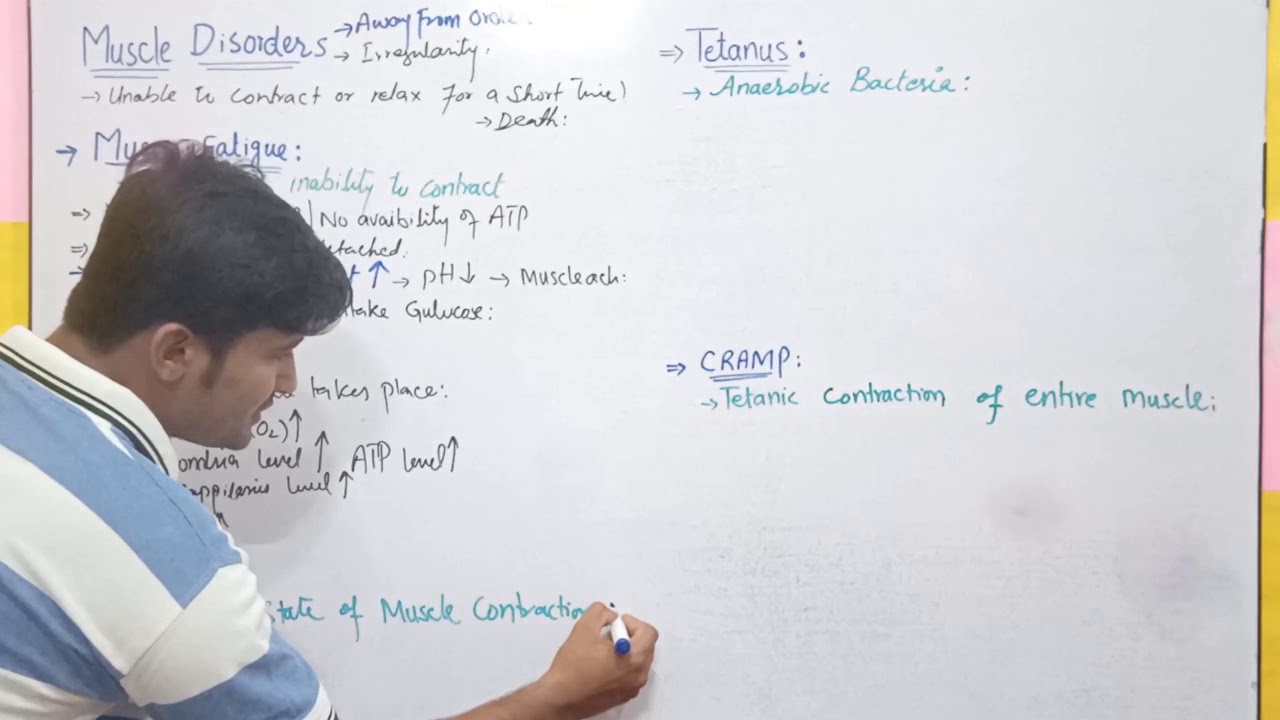 Muscle Disorders → Away From
→ Irregularity.
→ Unable to contract or relax for a short time)
→ Death:
→ Fatigue:
inability to contract
⇒ No avaibility of ATP
⇒ etached.
↑ → pH↓ → Muscleach:
take Gulucose:
takes place:
O₂)↑
ondria level ↑ ATP level↑
level ↑
State of Muscle Contraction
⇒ Tetanus:
→ Anaerobic Bacteria:
⇒ CRAMP:
→ Tetanic Contraction of entire muscle: